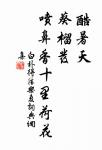 酷暑天
葵榴发
喷鼻香十里荷花
白朴得胜乐夏词典网
集